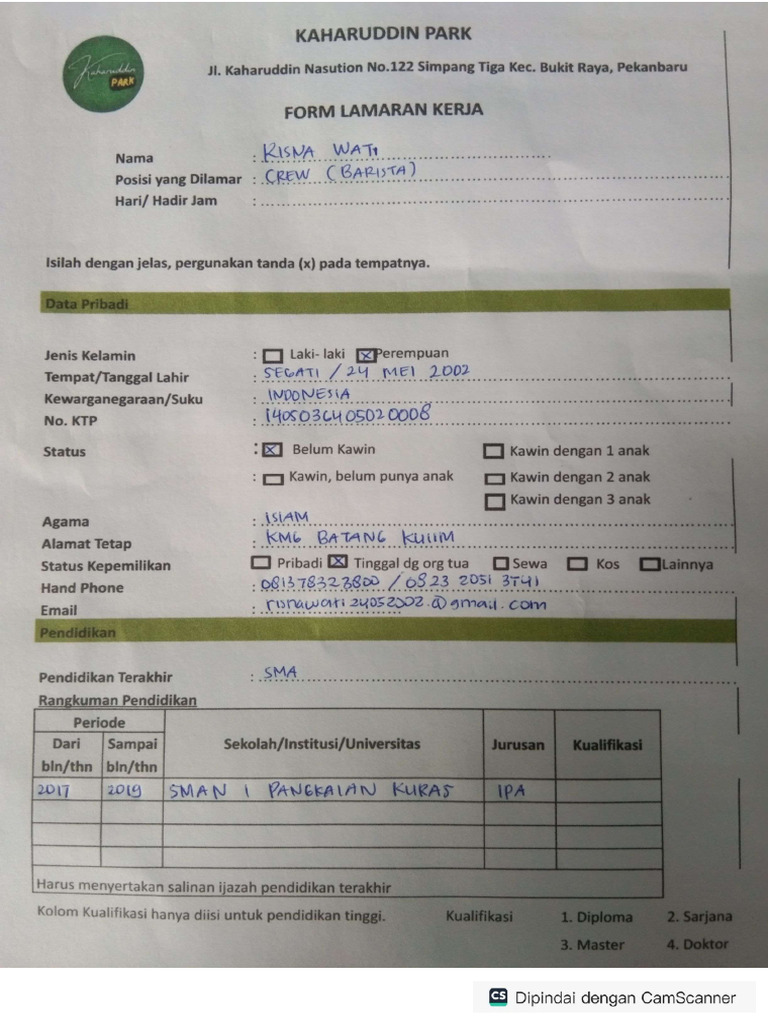 KAHARUDDIN PARK
Kaharuddin
PARK
Jl. Kaharuddin Nasution No.122 Simpang Tiga Kec. Bukit Raya, Pekanbaru
FORM LAMARAN KERJA
Nama : RISNA WATI
Posisi yang Dilamar : CREW (BARISTA)
Hari/ Hadir Jam :
Isilah dengan jelas, pergunakan tanda (x) pada tempatnya.
Data Pribadi
Jenis Kelamin : ☐ Laki- laki ☒ Perempuan
Tempat/Tanggal Lahir : SEGATI / 24 MEI 2002
Kewarganegaraan/Suku : INDONESIA
No. KTP : 1405036405020008
Status : ☒ Belum Kawin ☐ Kawin dengan 1 anak
: ☐ Kawin, belum punya anak ☐ Kawin dengan 2 anak
☐ Kawin dengan 3 anak
Agama : ISLAM
Alamat Tetap : KM6 BATANG KULIM
Status Kepemilikan ☐ Pribadi ☒ Tinggal dg org tua ☐ Sewa ☐ Kos ☐ Lainnya
Hand Phone : 081378323800 / 0823 2051 3741
Email : risnawati24052002.@gmail.com
Pendidikan
Pendidikan Terakhir : SMA
Rangkuman Pendidikan
Periode
Dari Sampai Sekolah/Institusi/Universitas Jurusan Kualifikasi
bln/thn bln/thn
2017 2019 SMAN 1 PANGKALAN KURAS IPA
Harus menyertakan salinan ijazah pendidikan terakhir
Kolom Kualifikasi hanya diisi untuk pendidikan tinggi. Kualifikasi 1. Diploma 2. Sarjana
3. Master 4. Doktor
CS Dipindai dengan CamScanner